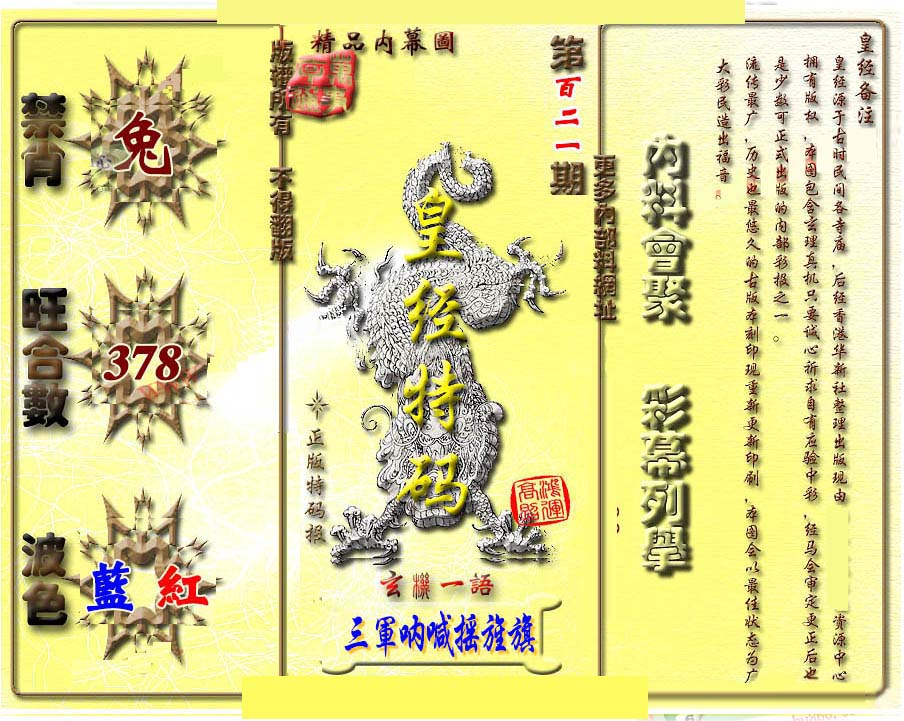 皇经备注
皇经源于古时民间各寺庙，后经香港华新社整理出版现由
资源中心
拥有版权，本图包含玄理真机只要诚心祈求自有应验中彩，经马会审定更正后也
是少数可正式出版的内部彩报之一。
流传最广，历史也最悠久的古版本刻印现重新更新印刷，本图会以最佳状态为广
大彩民造出福音
内料會聚
彩幕列舉
更多內部料網址
第百二一期
精品内幕圖
版權所有
不得翻版
皇经特码
正版特码报
鴻運
高照
玄機一語
三軍呐喊摇旌旗
禁肖
兔
旺合數
378
波色
藍 紅